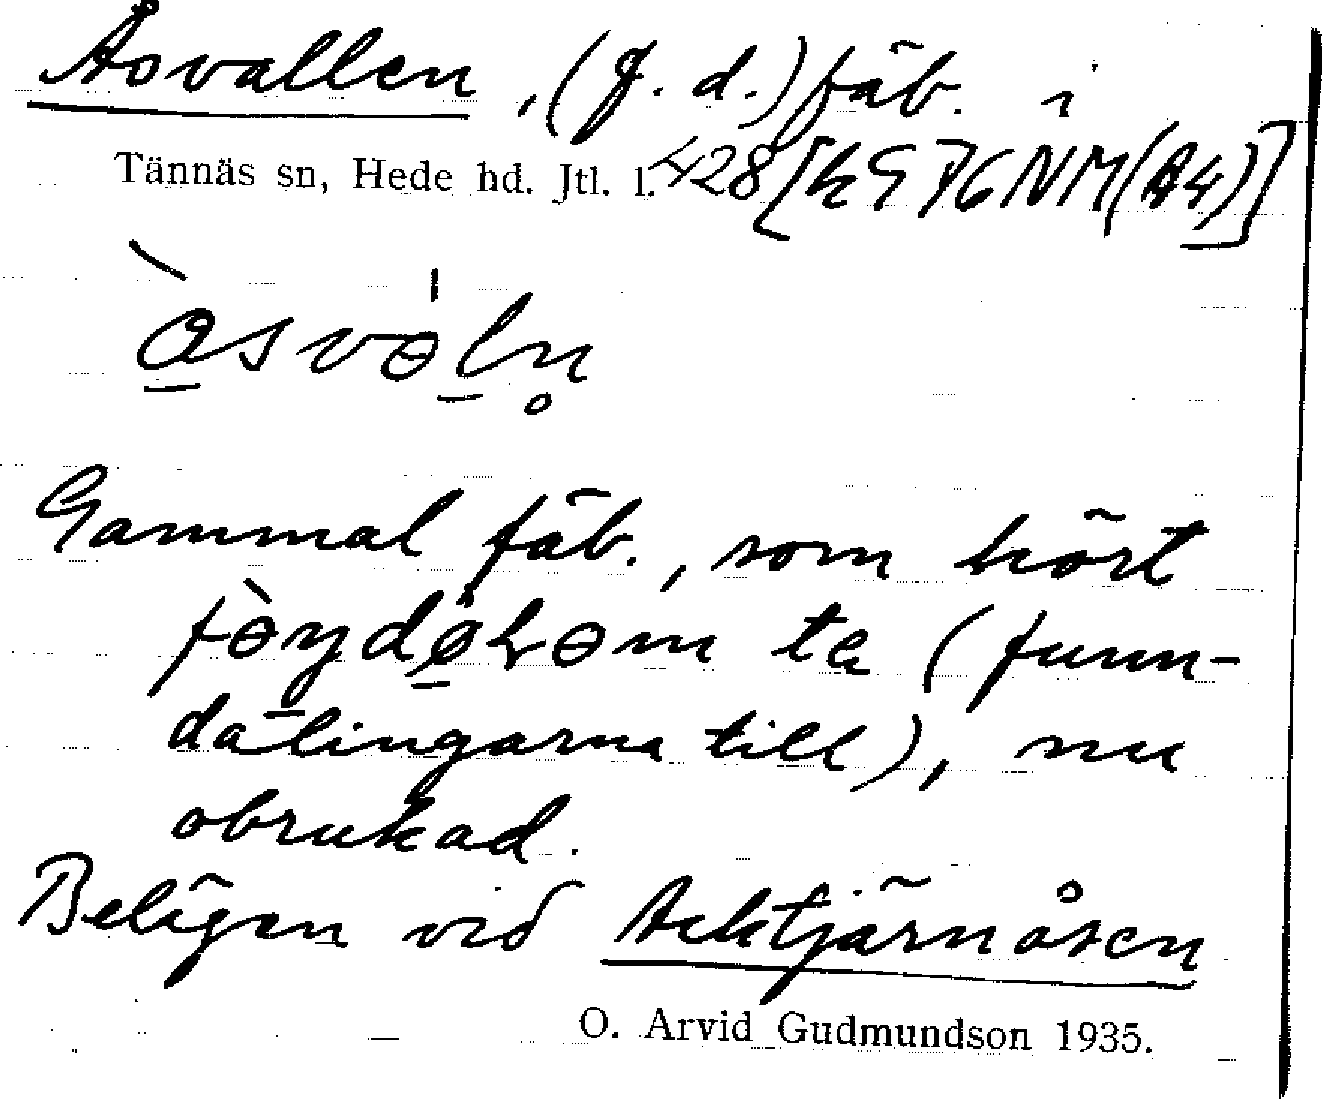 Åsvallen, (f. d.) fäb. i
Tännäs sn, Hede hd. Jtl. l. 428 [k G 76 NM (A4)]
Gammal fäb., som hört
ta (funn-
dalingarna till), nu
obrukad.
Belägen vid Acktjärnåsen
O. Arvid Gudmundson 1935.